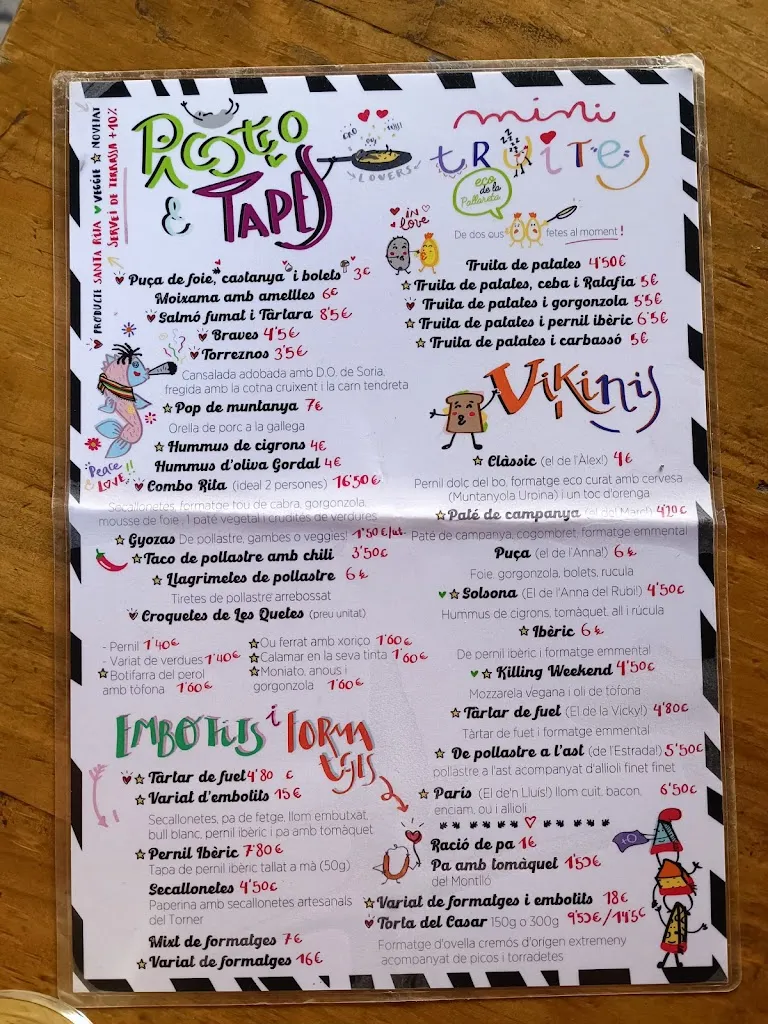 PRODUCTE SANTA RITA VEGGIE NOVETAT
SERVEI DE TERRASSA +10%
Picoteo
& TAPES
LOVERS
Puça de foie, castanya i bolets 3€
Moixama amb ametlles 6€
Salmó fumat i Tàrtara 8'5€
Braves 4'5€
Torreznos 3'5€
Cansalada adobada amb D.O. de Soria,
fregida amb la cotna cruixent i la carn tendreta
Pop de muntanya 7€
Orella de porc a la gallega
Hummus de cigrons 4€
Hummus d'oliva Gordal 4€
Peace & LOVE!!
Combo Rita (ideal 2 persones) 16'50€
Secallonetes, formatge tou de cabra, gorgonzola,
mousse de foie, 1 paté vegetal i crudités de verdures
Gyozas De pollastre, gambes o veggies! 1'50€/ut.
Taco de pollastre amb chili 3'50€
Llagrimetes de pollastre 6€
Tiretes de pollastre arrebossat
Croquetes de Les Quetes (preu unitat)
- Pernil 1'40€
- Variat de verdures 1'40€
Botifarra del perol
amb tòfona 1'60€
Ou ferrat amb xoriço 1'60€
Calamar en la seva tinta 1'60€
Moniato, anous i
gorgonzola 1'60€
EMBOTITS i FORMATGES
Tàrtar de fuet 4'80€
Variat d'embotits 15€
Secallonetes, pa de fetge, llom embutxat,
bull blanc, pernil ibèric i pa amb tomàquet
Pernil Ibèric 7'80€
Tapa de pernil ibèric tallat a mà (50g)
Secallonetes 4'50€
Paperina amb secallonetes artesanals
del Torner
Mixt de formatges 7€
Variat de formatges 16€
mini
TRUITES
eco
de la
Pallareta
in love
De dos ous fetes al moment!
Truita de patates 4'50€
Truita de patates, ceba i Ratafia 5€
Truita de patates i gorgonzola 5'5€
Truita de patates i pernil ibèric 6'5€
Truita de patates i carbassó 5€
VIKINIS
Clàssic (el de l'Àlex!) 4€
Pernil dolç del bo, formatge eco curat amb cervesa
(Muntanyola Urpina) i un toc d'orenga
Paté de campanya (el del Marc!) 4'20€
Paté de campanya, cogombret, formatge emmental
Puça (el de l'Anna!) 6€
Foie, gorgonzola, bolets, rucula
Solsona (El de l'Anna del Rubi!) 4'50€
Hummus de cigrons, tomàquet, all i rúcula
Ibèric 6€
De pernil ibèric i formatge emmental
Killing Weekend 4'50€
Mozzarela vegana i oli de tòfona
Tàrtar de fuet (El de la Vicky!) 4'80€
Tàrtar de fuet i formatge emmental
De pollastre a l'ast (de l'Estrada!) 5'50€
pollastre a l'ast acompanyat d'allioli finet finet
París (El de'n Lluís!) llom cuit, bacon, 6'50€
enciam, ou i allioli
Ració de pa 1€
Pa amb tomàquet 1'50€
del Montlló
Variat de formatges i embotits 18€
Torta del Casar 150g o 300g 9'50€/14'5€
Formatge d'ovella cremós d'origen extremeny
acompanyat de picos i torradetes